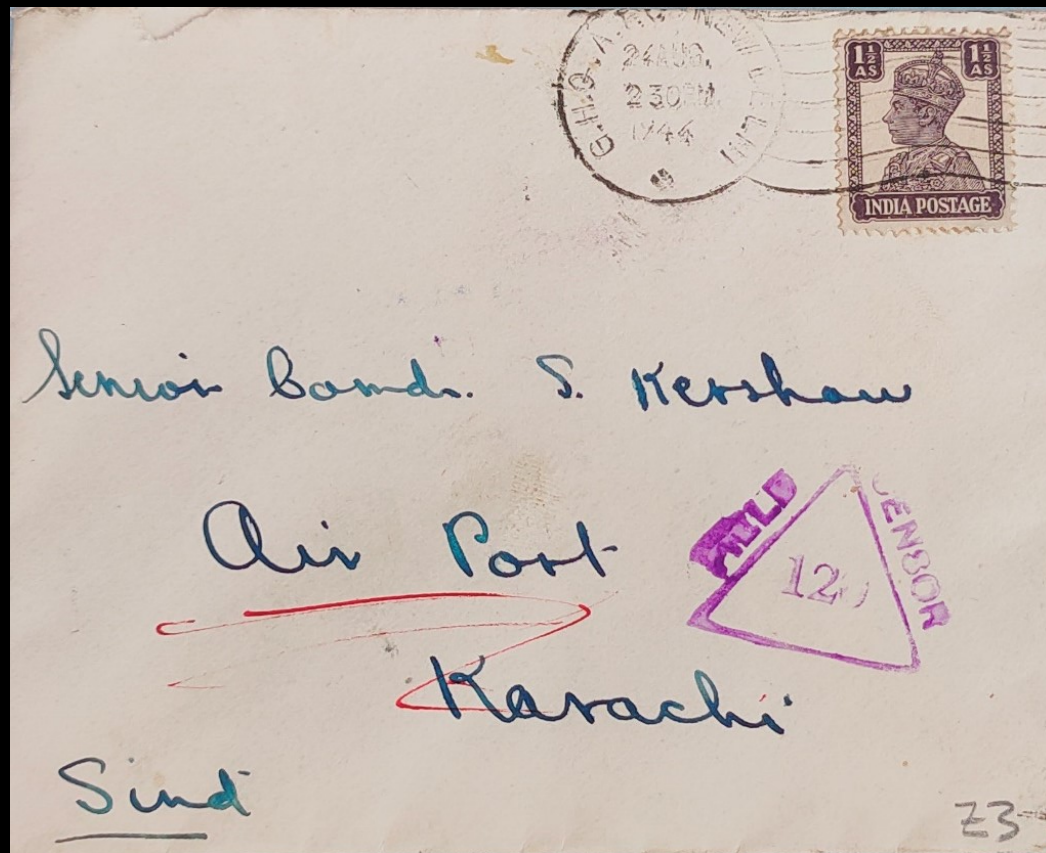 G.H.Q. A.P.O. NEW DELHI
24 AUG.
2 30 PM.
1944
1½ AS 1½ AS
INDIA POSTAGE
Senior Comdr. S. Kershaw
Air Port
CENSOR
Karachi
Sind
Z3